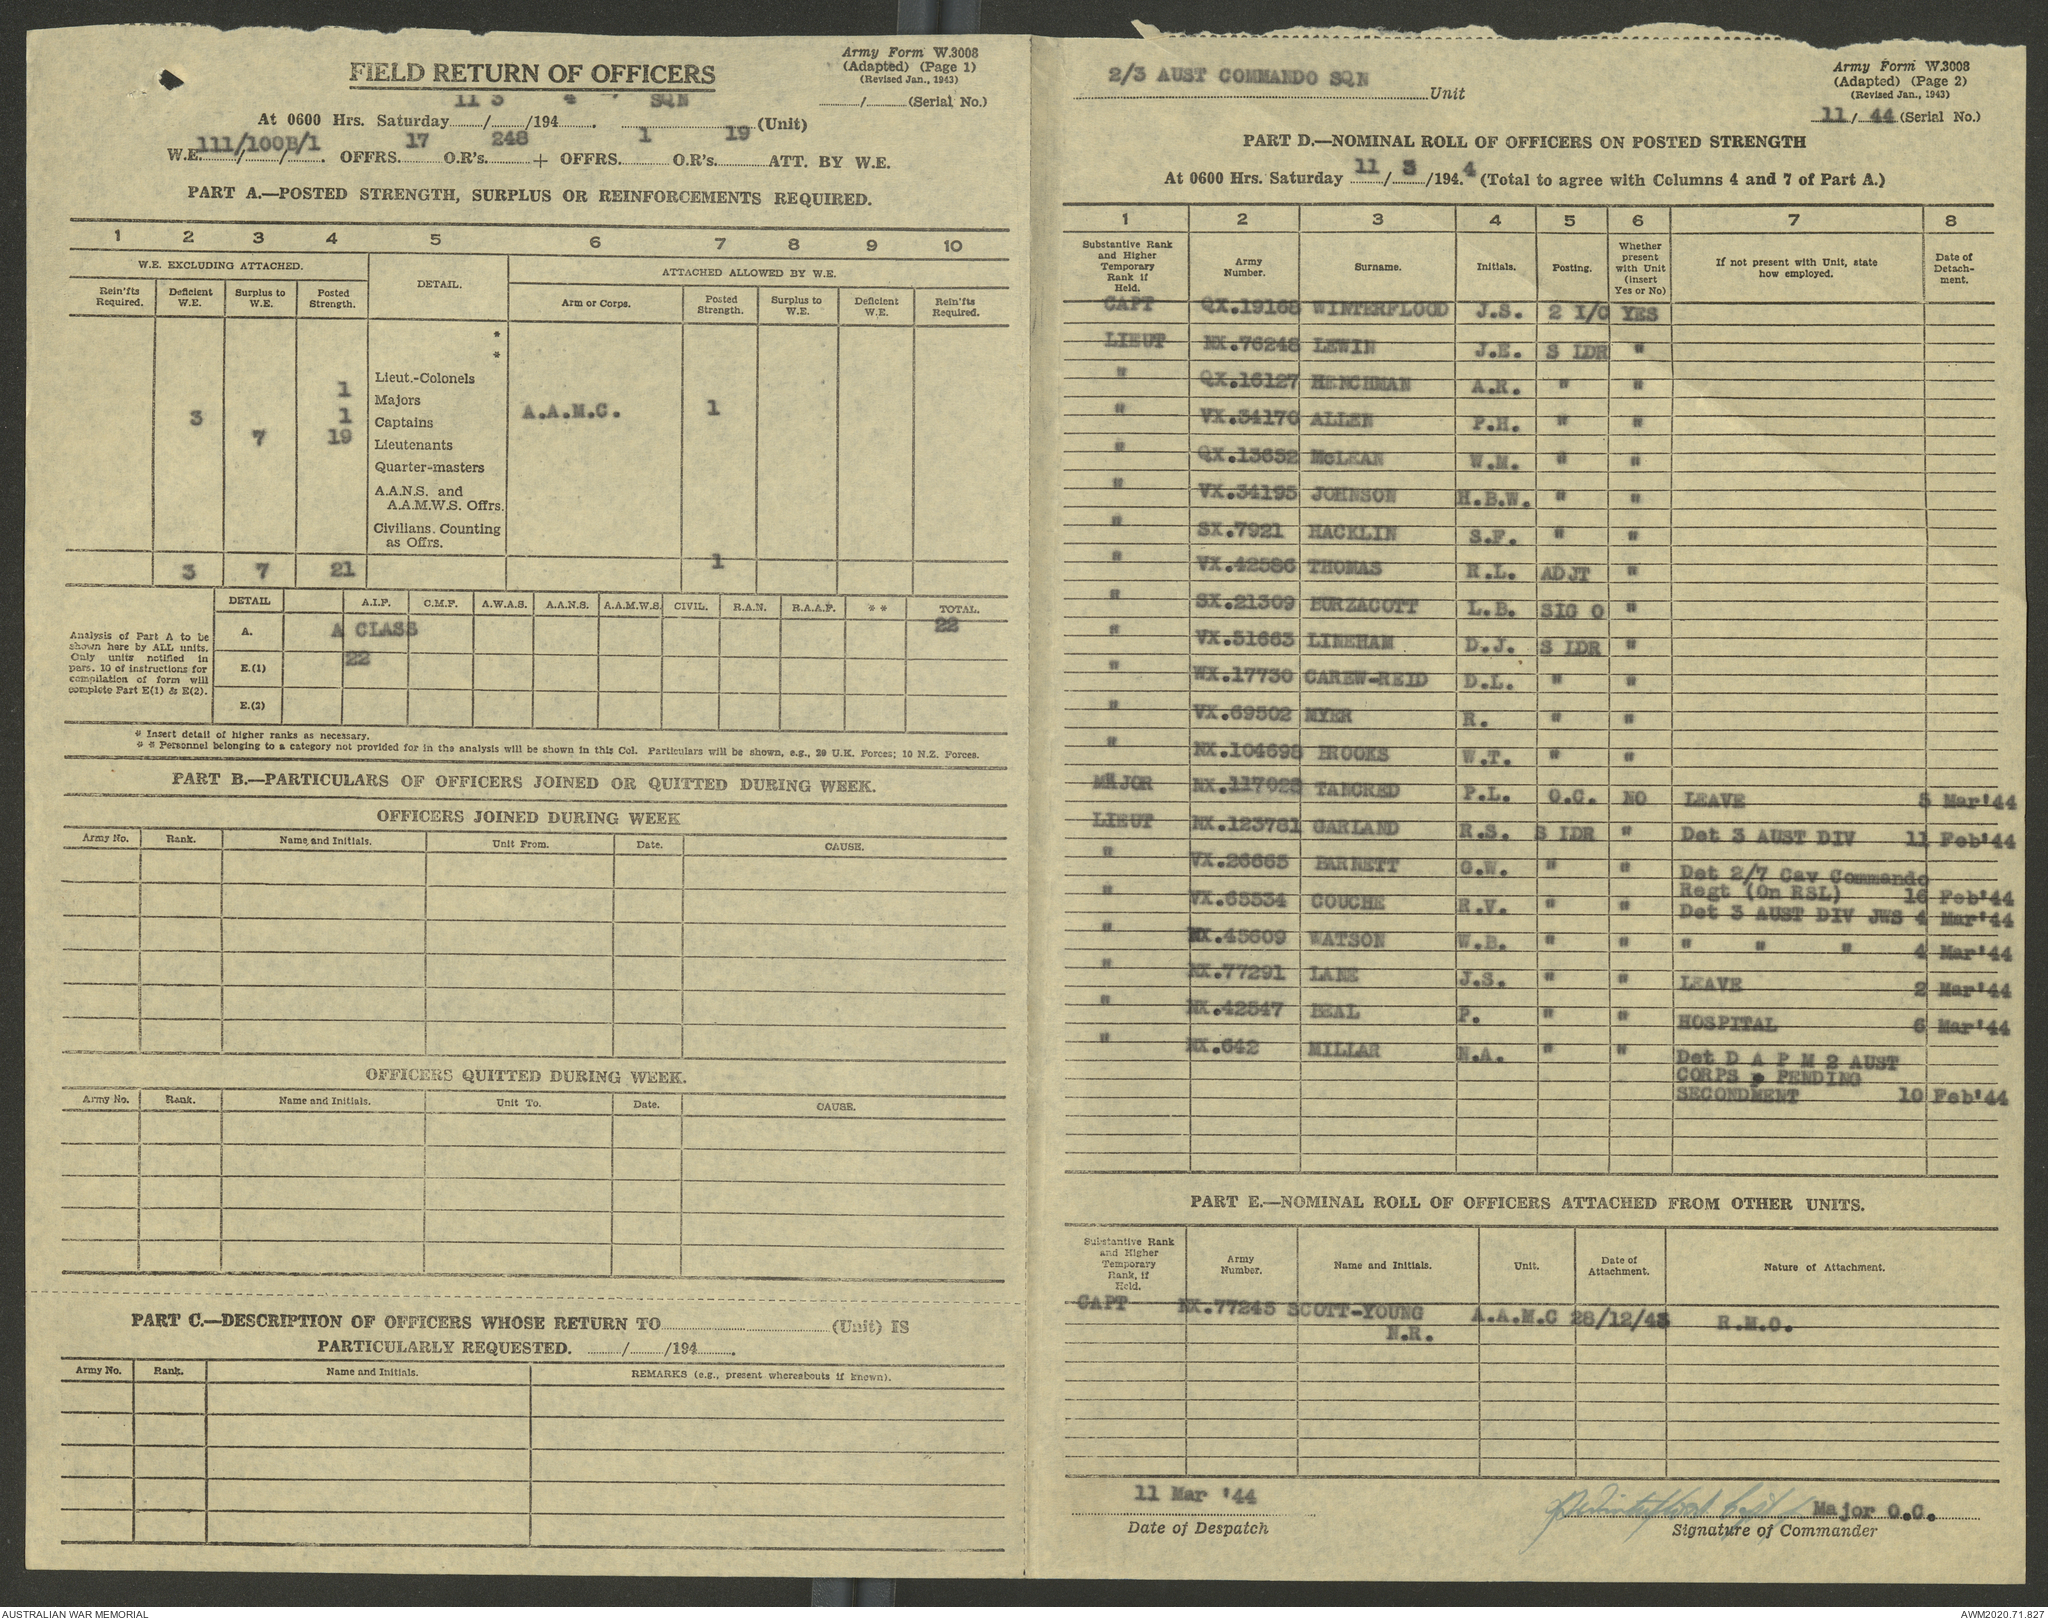 Army Form W.3008
(Adapted) (Page 1)
(Revised Jan., 1943)
FIELD RETURN OF OFFICERS
11 3 4 SQN
....../...... (Serial No.)
At 0600 Hrs. Saturday....../....../194...... . ............(Unit)
W.E. 111/100B/1 . OFFRS. 17 O.R's. 248 + OFFRS. 1 O.R's. 19 ATT. BY W.E.
PART A.—POSTED STRENGTH, SURPLUS OR REINFORCEMENTS REQUIRED.
1 2 3 4 5 6 7 8 9 10
W.E. EXCLUDING ATTACHED. DETAIL. ATTACHED ALLOWED BY W.E.
Rein'fts Required. Deficient W.E. Surplus to W.E. Posted Strength. Arm or Corps. Posted Strength. Surplus to W.E. Deficient W.E. Rein'fts Required.
*
*
Lieut.-Colonels
1 Majors
3 1 Captains A.A.M.C. 1
7 19 Lieutenants
Quarter-masters
A.A.N.S. and
A.A.M.W.S. Offrs.
Civilians. Counting
as Offrs.
3 7 21 1
DETAIL A.I.F. C.M.F. A.W.A.S. A.A.N.S. A.A.M.W.S. CIVIL. R.A.N. R.A.A.F. * * TOTAL.
Analysis of Part A to be
shown here by ALL units.
Only units notified in
pars. 10 of instructions for
compilation of form will
complete Part E(1) & E(2).
A. A CLASS 22
E.(1) 22
E.(2)
* Insert detail of higher ranks as necessary.
* * Personnel belonging to a category not provided for in the analysis will be shown in this Col. Particulars will be shown, e.g., 29 U.K. Forces; 10 N.Z. Forces.
PART B.—PARTICULARS OF OFFICERS JOINED OR QUITTED DURING WEEK.
OFFICERS JOINED DURING WEEK
Army No. Rank. Name and Initials. Unit From. Date. CAUSE.
OFFICERS QUITTED DURING WEEK.
Army No. Rank. Name and Initials. Unit To. Date. CAUSE.
PART C.—DESCRIPTION OF OFFICERS WHOSE RETURN TO............(Unit) IS
PARTICULARLY REQUESTED. ....../....../194...... .
Army No. Rank. Name and Initials. REMARKS (e.g., present whereabouts if known).
2/3 AUST COMMANDO SQN Unit
Army Form W.3008
(Adapted) (Page 2)
(Revised Jan., 1943)
11/ 44 (Serial No.)
PART D.—NOMINAL ROLL OF OFFICERS ON POSTED STRENGTH
At 0600 Hrs. Saturday 11 / 3 /194. 4 (Total to agree with Columns 4 and 7 of Part A.)
1 2 3 4 5 6 7 8
Substantive Rank and Higher Temporary Rank if Held. Army Number. Surname. Initials. Posting. Whether present with Unit (insert Yes or No) If not present with Unit, state how employed. Date of Detach-ment.
CAPT QX.19168 WINTERFLOOD J.S. 2 I/C YES
LIEUT NX.76248 LEWIN J.E. S LDR "
" QX.16127 HENCHMAN A.R. " "
" VX.34170 ALLEN P.H. " "
" QX.13652 McLEAN W.M. " "
" VX.34195 JOHNSON H.B.W. " "
" SX.7921 HACKLIN S.F. " "
" VX.42586 THOMAS R.L. ADJT "
" SX.21309 BURZACOTT L.B. SIG O "
" VX.51663 LINEHAM D.J. S LDR "
" WX.17730 CAREW-REID D.L. " "
" VX.69502 MYER R. " "
" NX.104698 BROOKS W.T. " "
MAJOR NX.117028 TANCRED P.L. O.C. NO LEAVE 5 Mar'44
LIEUT NX.123781 GARLAND R.S. S LDR " Det 3 AUST DIV 11 Feb'44
" VX.26665 BARNETT G.W. " " Det 2/7 Cav Commando
Regt (On RSL) 16 Feb'44
" VX.65534 COUCHE R.V. " " Det 3 AUST DIV JWS 4 Mar'44
" NX.45609 WATSON W.B. " " " " " 4 Mar'44
" NX.77291 LANE J.S. " " LEAVE 2 Mar'44
" NX.42547 BEAL P. " " HOSPITAL 6 Mar'44
" NX.642 MILLAR N.A. " " Det D A P M 2 AUST
CORPS PENDING
SECONDMENT 10 Feb'44
PART E.—NOMINAL ROLL OF OFFICERS ATTACHED FROM OTHER UNITS.
Substantive Rank and Higher Temporary Rank, if Held. Army Number. Name and Initials. Unit. Date of Attachment. Nature of Attachment.
CAPT NX.77245 SCOTT-YOUNG A.A.M.C 28/12/43 R.M.O.
N.R.
11 Mar '44
Date of Despatch
JWinterflood Capt / Major O.C.
Signature of Commander
AUSTRALIAN WAR MEMORIAL
AWM2020.71.827